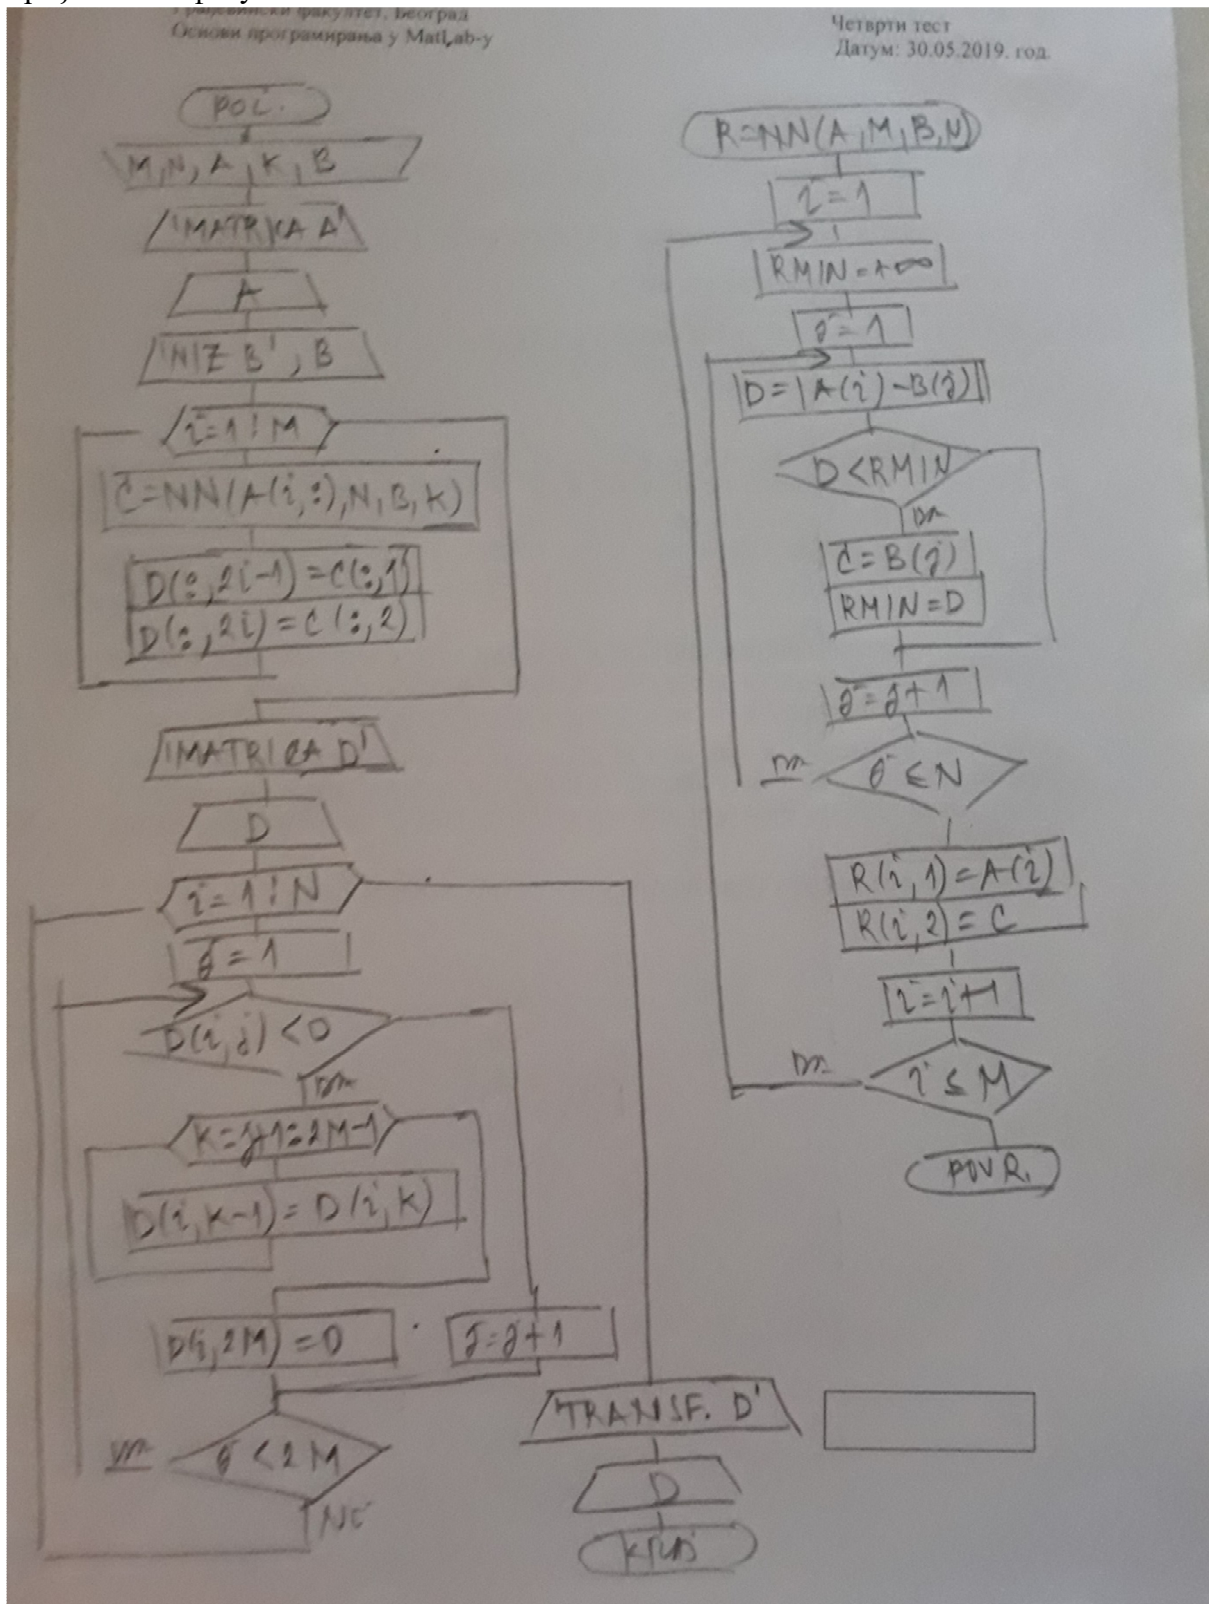 Грађевински факултет, Београд
Основи програмирања у MatLab-у
Четврти тест
Датум: 30.05.2019. год.
POČ.
M,N,A,K,B
'MATRICA A'
A
'NIZ B', B
i=1:M
C=NN(A(i,:),N,B,K)
D(:,2i-1)=C(:,1)
D(:,2i)=C(:,2)
'MATRICA D'
D
i=1:N
j=1
D(i,j)<0
DA
K=j+1:2M-1
D(i,K-1)=D(i,K)
D(i,2M)=0
j=j+1
j<2M
DA
NE
'TRANSF. D'
D
KRAJ
R=NN(A,M,B,N)
i=1
RMIN=+∞
j=1
D=|A(i)-B(j)|
D<RMIN
DA
C=B(j)
RMIN=D
j=j+1
DA
j≤N
R(i,1)=A(i)
R(i,2)=C
i=i+1
DA
i≤M
POVR.